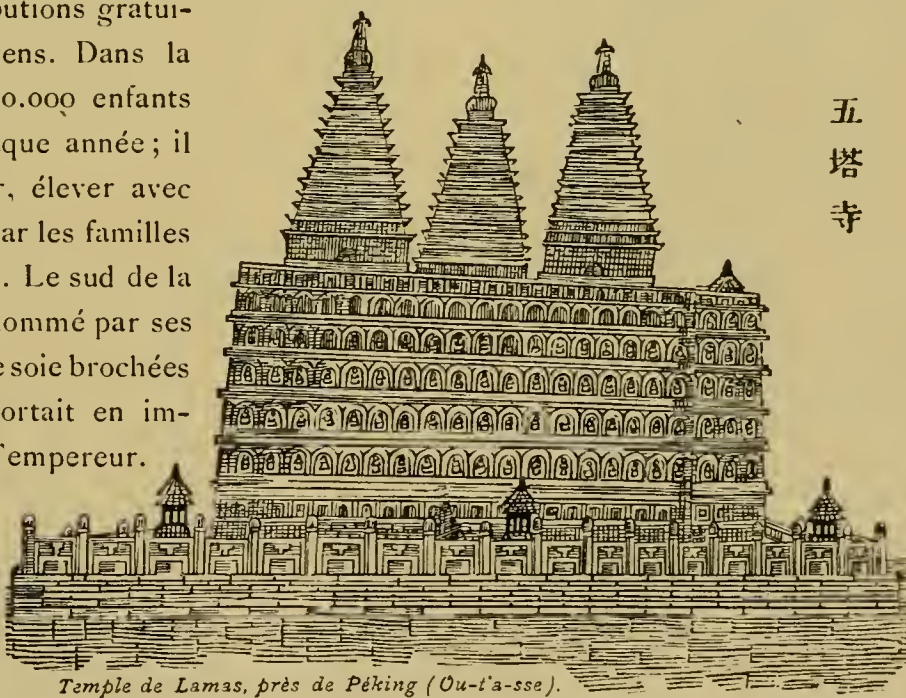 butions gratui-
ens. Dans la
0.000 enfants
que année ; il
r, élever avec
ar les familles
. Le sud de la
ommé par ses
e soie brochées
ortait en im-
'empereur.
五
塔
寺
Temple de Lamas, près de Péking (Ou-t'a-sse).